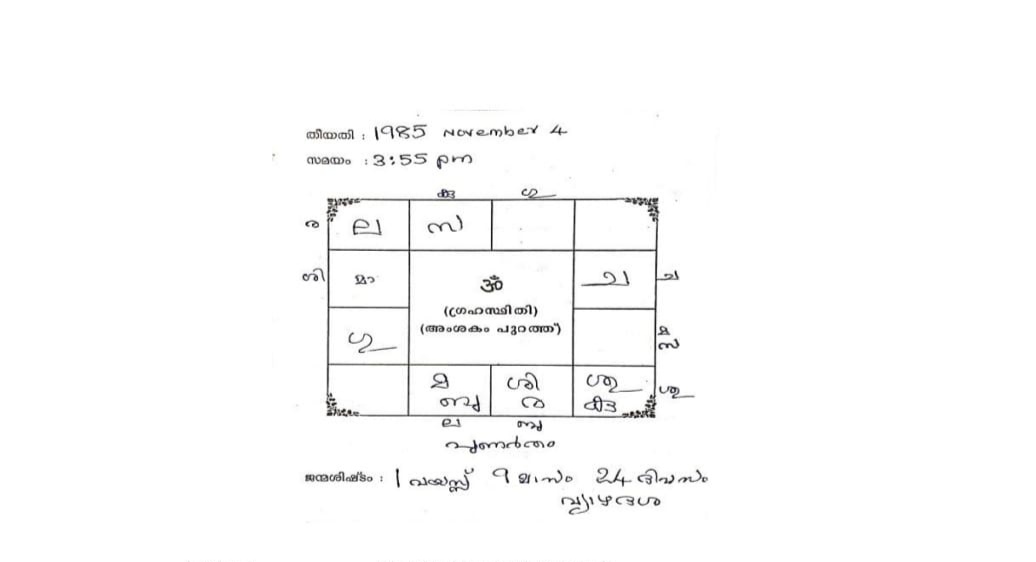 തീയതി : 1985 November 4
സമയം : 3:55 pm
കു ഗു
ര ല സ
ശി മാ ച ച
ॐ
(ഗ്രഹസ്ഥിതി)
(അംശകം പുറത്ത്)
ഗു മ
സ
മ ശി ശു ശു
ബു ര കു
ല ബു
പുണർതം
ജന്മശിഷ്ടം : 1 വയസ്സ് 9 മാസം 24 ദിവസം
വ്യാഴദശ